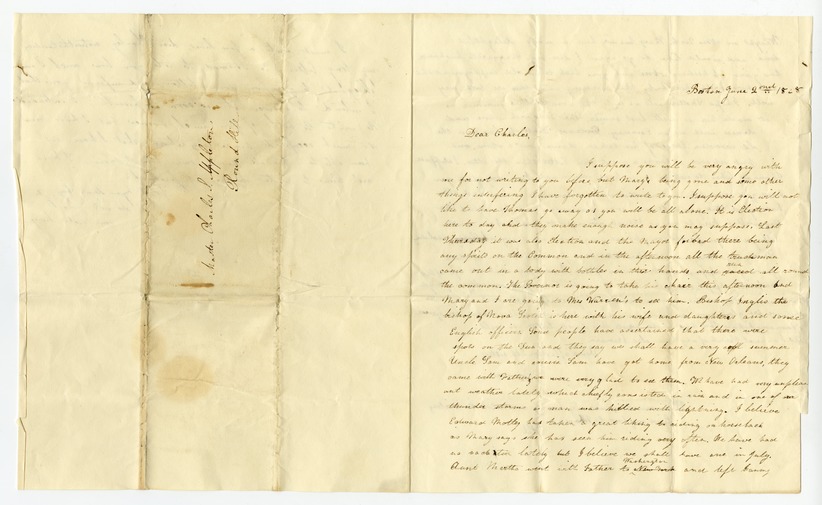 Master Charles S. Appleton.
Round Hill
Boston June 2ond 1828
Dear Charles,
I suppose you will be very angry with
me for not writing to you before but Mary's being gone and some other
things interfering I have forgotten to write to you. I suppose you will not
like to have Thomas go away as you will be all alone. It is Election
here to day and they make enough noise as you may suppose. Last
it was also Election and the Mayor forbad there being
any spirits on the Common and in the afternoon all the truckmen
came out in a body with bottles in their hands and all round
the common. The Govenor is going to take his chair this afternoon and
Mary and I are going to Mrs Warren's to see him. Bishop Inglis the
bishop of Nova Scotia is here with his wife and daughters and some
English officers. Some people have assertained that there were
spots on the Sun and they say we shall have a very summer
Uncle Sam and cousin Sam have got home from New Orleans, they
came with Father, we were very glad to see them. We have had very unpleas
ant weather lately which chiefly consisted in rain and in one of our
thunder storms a man was killed with lightning. I believe
Edward Motley has taken a great liking to riding on horseback
as Mary says she has seen him riding very often. We have had
no lately but I believe we shall have one in July.
Washington
Aunt Martha went with Father to New York and left Fanny